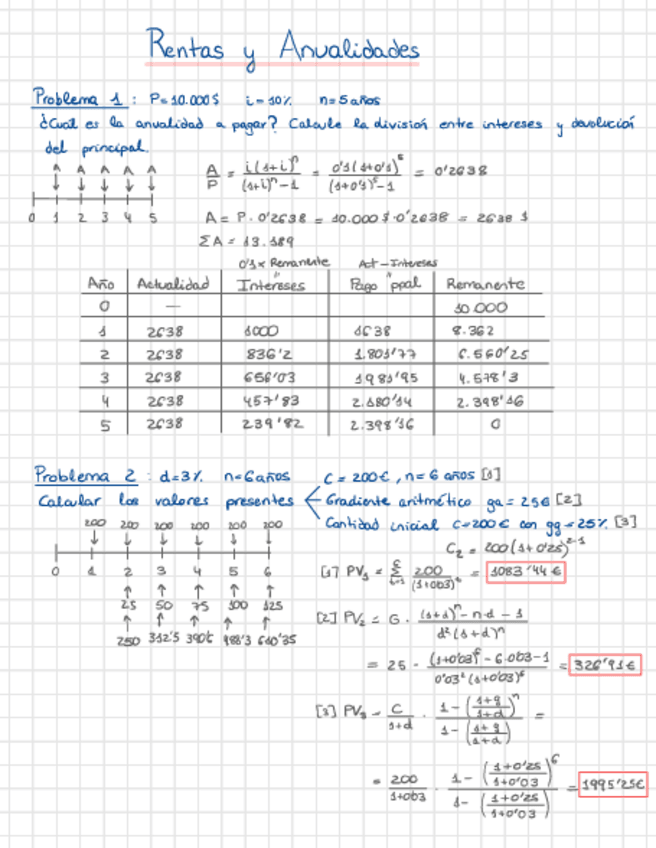 Rentas y Anualidades
Problema 1 : P= 10.000$ i= 10% n= 5 años
¿Cual es la anualidad a pagar? Calcule la división entre intereses y devolución
del principal.
A A A A A
0 1 2 3 4 5
A/P = i(1+i)^n / (1+i)^n - 1 = 0'1(1+0'1)^5 / (1+0'1)^5 - 1 = 0'2638
A = P · 0'2638 = 10.000 $ · 0'2638 = 2638 $
ΣA = 13.189
0'1 x Remanente Act - Intereses
Año Actualidad Intereses Pago ppal Remanente
0 — 10.000
1 2638 1000 1638 8.362
2 2638 836'2 1.801'77 6.560'25
3 2638 656'03 1981'95 4.578'3
4 2638 457'83 2.180'14 2.398'16
5 2638 239'82 2.398'16 0
Problema 2 : d=3% n=6 años C = 200€ , n= 6 años [1]
Calcular los valores presentes Gradiente aritmético ga= 25€ [2]
Cantidad inicial C=200€ con gg=25% [3]
200 200 200 200 200 200
0 1 2 3 4 5 6
25 50 75 100 125
250 312'5 390'6 488'3 610'35
C2 = 200(1+0'25)^2-1
[1] PV1 = Σ 200 / (1+0'03)^t = 1083'44€
[2] PV2 = G · (1+d)^n - n·d - 1 / d²(1+d)^n
= 25 · (1+0'03)^6 - 6·0'03 - 1 / 0'03²(1+0'03)^6 = 326'91€
[3] PV3 = C / 1+d · 1 - (1+g / 1+d)^n / 1 - (1+g / 1+d) =
= 200 / 1+0'03 · 1 - (1+0'25 / 1+0'03)^6 / 1 - (1+0'25 / 1+0'03) = 1995'25€